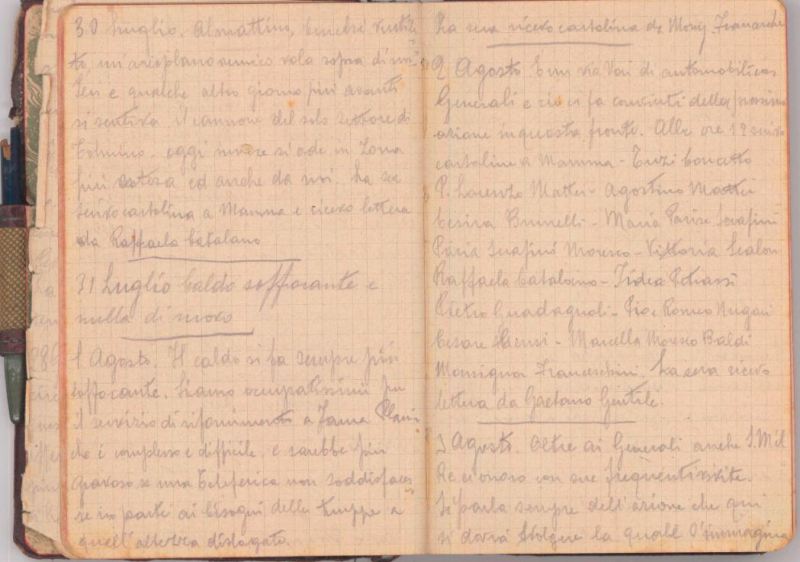 30 Luglio. Al mattino,
te un aeroplano nemico vola sopra di noi.
Ieri e qualche altro giorno più avanti
si sentiva il cannone del solo settore di
Tolmino - oggi invece si ode in Zona
più estesa ed anche da noi. La sera
scrivo cartolina a Mamma e ricevo lettera
da Raffaela Catalano
31 Luglio Caldo soffocante e
nulla di nuovo
1 Agosto. Il caldo si fa sempre più
soffocante. Siamo occupatissimi per
il servizio di rifornimento a Jama Planina
che è complesso e difficile, e sarebbe più
gravoso se una Teleferica non soddisfaces
se in parte ai bisogni delle truppe a
quell'altezza dislogate.
La sera ricevo cartolina da Mons. Franceschi
2 Agosto. E un via vai di automobili con
Generali e ciò ci fa convinti della prossima
azione in questa fronte. Alle ore 12 scrivo
cartoline a Mamma -
P. Lorenzo Mattei - Agostino Mattei
Cesira Brunelli - Maria Parise Serafini
Maria Serafini Moresco - Vittoria Scaloni
Raffaela Catalano - Petrassi
Pietro Guadagnoli - Pia e Romeo
Cesare - Marcella Moresco Baldi
Monsignor Franceschini. La sera ricevo
lettera da Gaetano Gentile.
3 Agosto. Oltre ai Generali anche S. M. il
Re ci onora con sue frequenti visite.
Si parla sempre dell'azione che qui
si dovrà svolgere la quale s'immagina